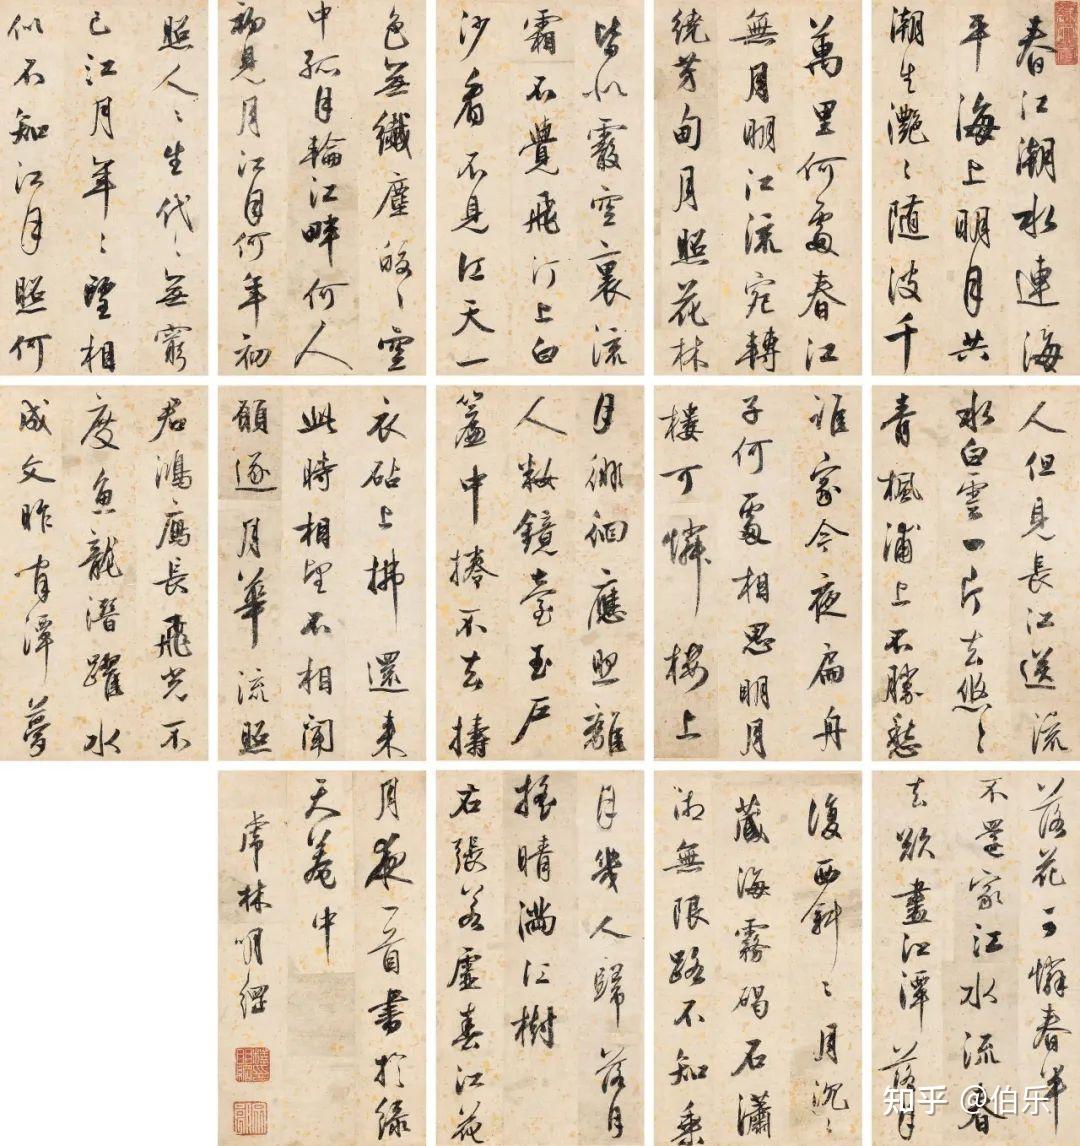 春江潮水連海
平海上明月共
潮生灧〻随波千
萬里何處春江
無月明江流宛轉
繞芳甸月照花林
皆似霰空裏流
霜不覺飛汀上白
沙看不見江天一
色無纖塵皎〻空
中孤月輪江畔何人
初見月江月何年初
照人〻生代〻無窮
已江月年〻望相
似不知江月照何
人但見長江送流
水白雲一片去悠〻
青楓浦上不勝愁
誰家今夜扁舟
子何處相思明月
樓可憐樓上
月徘徊應照離
人妝鏡臺玉戶
簾中捲不去擣
衣砧上拂還來
此時相望不相聞
願逐月華流照
君鴻鴈長飛光不
度魚龍潛躍水
成文昨宵潭夢
落花可憐春半
不還家江水流春
去欲盡江潭落月
復西斜〻月沉〻
藏海霧碣石瀟
湘無限路不知乘
月幾人歸落月
搖晴滿江樹
右張若虛春江花
月夜一首書於綠
天菴中
常林明
知乎 @伯乐